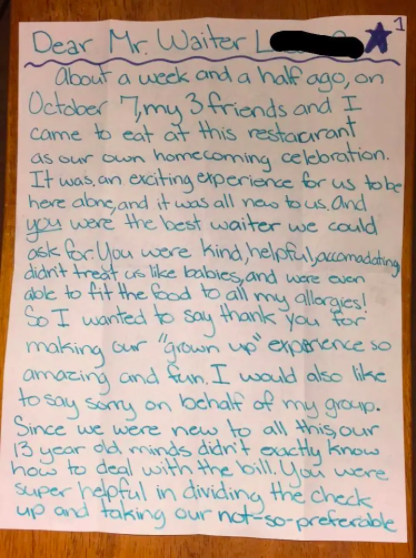 Dear Mr. Waiter L
1
About a week and a half ago, on
October 7, my 3 friends and I
came to eat at this restaurant
as our own homecoming celebration.
It was an exciting experience for us to be
here alone, and it was all new to us. And
you were the best waiter we could
ask for. You were kind, helpful, accomadating,
didn't treat us like babies, and were even
able to fit the food to all my allergies!
So I wanted to say thank you for
making our "grown up" experience so
amazing and fun. I would also like
to say sorry on behalf of my group.
Since we were new to all this, our
13 year old minds didn't exactly know
how to deal with the bill. You were
super helpful in dividing the check
up and taking our not-so-preferable